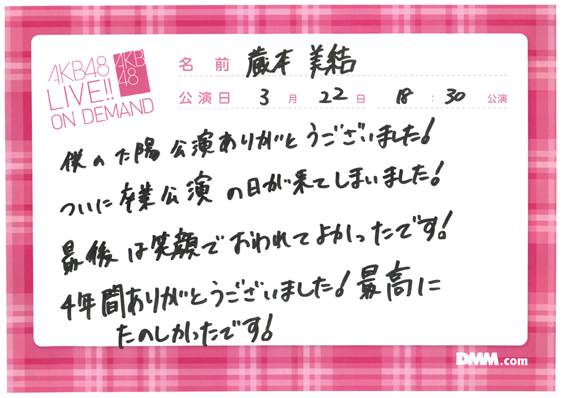 AKB48
LIVE!!
ON DEMAND
AKB
48
名前 蔵本 美結
公演日 3月 22日 18:30 公演
僕の太陽 公演ありがとうございました!
ついに卒業公演の日が来てしまいました!
最後は笑顔でおわれてよかったです!
4年間ありがとうございました!最高に
たのしかったです!
DMM.com